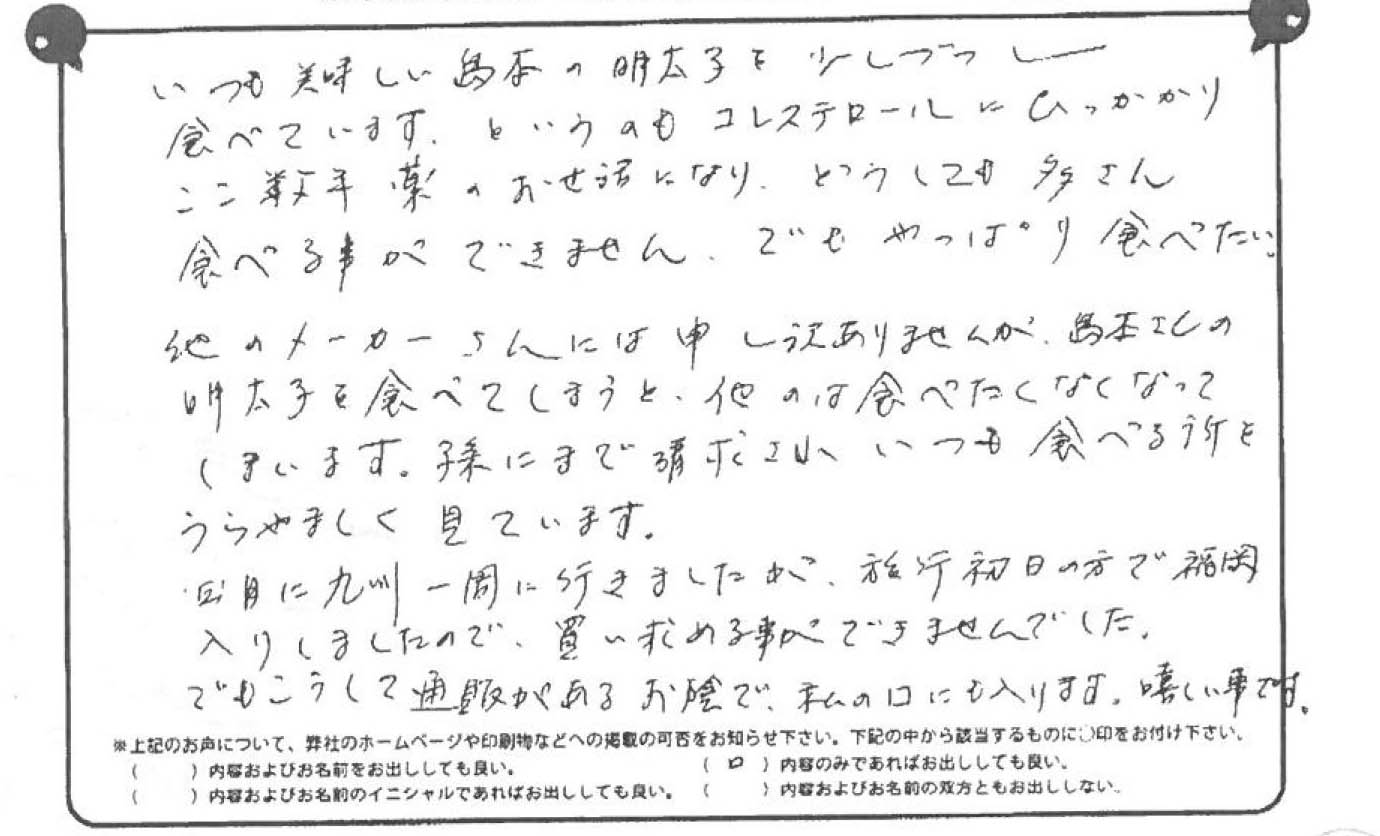 いつも美味しい島本の明太子を少しづつし
食べています。というのもコレステロールにひっかかり
ここ数年薬のお世話になり、どうしても多さん
食べる事ができません、でもやっぱり食べたい。
他のメーカーさんには申し訳ありませんが、島本さんの
明太子を食べてしまうと、他のは食べたくなくなって
しまいます。孫にまで請求され、いつも食べる所を
うらやましく見ています。
月に九州一周に行きましたが、旅行初日の方で福岡
入りしましたので、買い求める事ができませんでした。
でもこうして通販があるお陰で、私の口にも入ります。嬉しい事です。
※上記のお声について、弊社のホームページや印刷物などへの掲載の可否をお知らせ下さい。下記の中から該当するものに○印をお付け下さい。
(　　) 内容およびお名前をお出ししても良い。　(　ロ　) 内容のみであればお出ししても良い。
(　　) 内容およびお名前のイニシャルであればお出ししても良い。　(　　) 内容およびお名前の双方ともお出ししない。